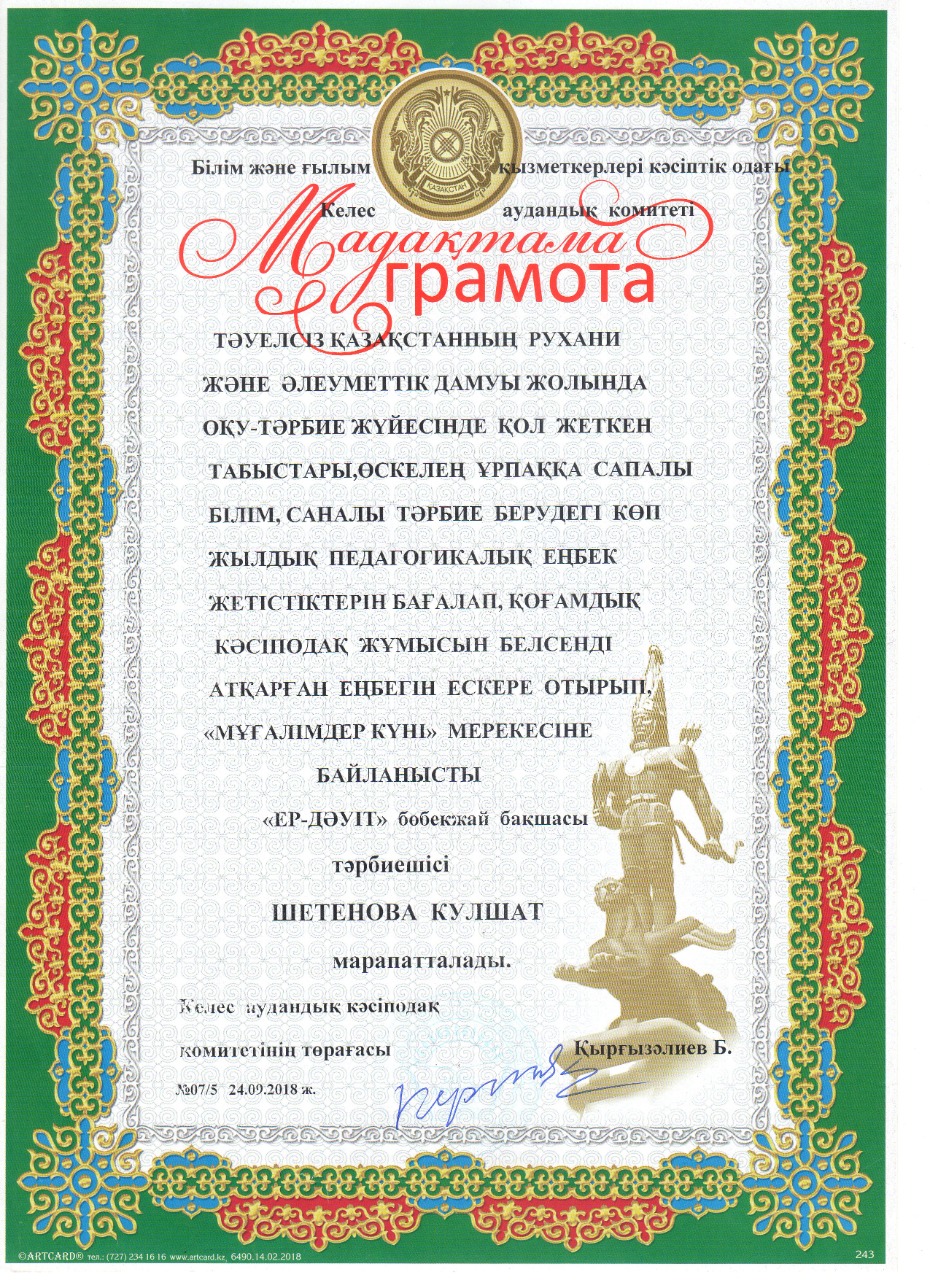 Білім және ғылым қызметкерлері кәсіптік одағы
ҚАЗАҚСТАН
Келес аудандық комитеті
Мадақтама
грамота
ТӘУЕЛСІЗ ҚАЗАҚСТАННЫҢ РУХАНИ
ЖӘНЕ ӘЛЕУМЕТТІК ДАМУЫ ЖОЛЫНДА
ОҚУ-ТӘРБИЕ ЖҮЙЕСІНДЕ ҚОЛ ЖЕТКЕН
ТАБЫСТАРЫ,ӨСКЕЛЕҢ ҰРПАҚҚА САПАЛЫ
БІЛІМ, САНАЛЫ ТӘРБИЕ БЕРУДЕГІ КӨП
ЖЫЛДЫҚ ПЕДАГОГИКАЛЫҚ ЕҢБЕК
ЖЕТІСТІКТЕРІН БАҒАЛАП, ҚОҒАМДЫҚ
КӘСІПОДАҚ ЖҰМЫСЫН БЕЛСЕНДІ
АТҚАРҒАН ЕҢБЕГІН ЕСКЕРЕ ОТЫРЫП,
«МҰҒАЛІМДЕР КҮНІ» МЕРЕКЕСІНЕ
БАЙЛАНЫСТЫ
«ЕР-ДӘУІТ» бөбекжай бақшасы
тәрбиешісі
ШЕТЕНОВА КУЛШАТ
марапатталады.
Келес аудандық кәсіподақ
комитетінің төрағасы Қырғызәлиев Б.
№07/5 24.09.2018 ж.
©ARTCARD® тел.: (727) 234 16 16 www.artcard.kz, 6490.14.02.2018 243